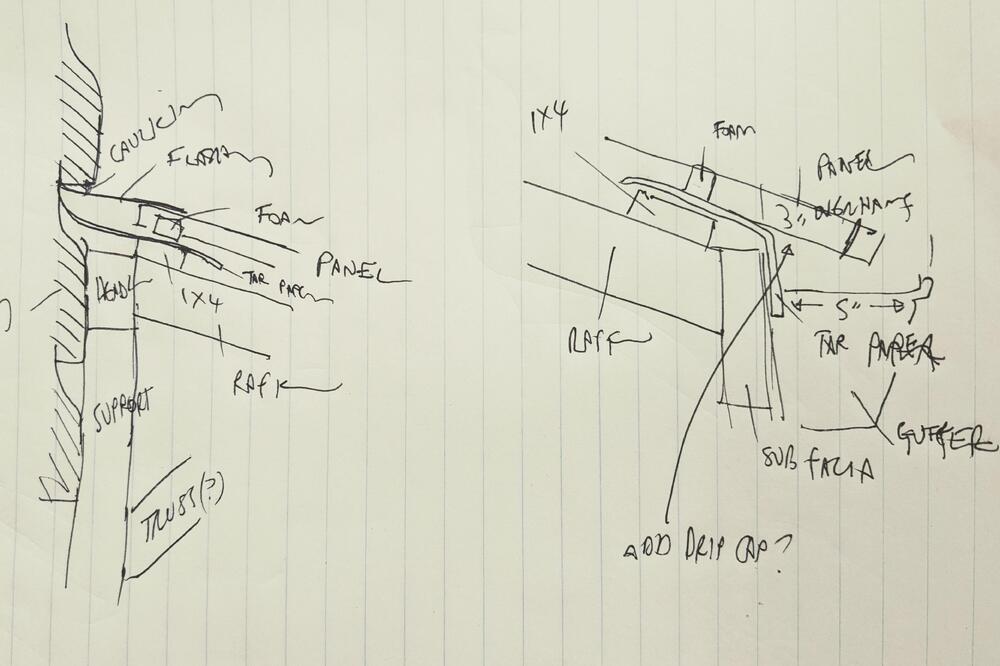 CAULK
FLASH
FOAM
PANEL
TAR PAPER
1X4
HEAD
RAFT
SUPPORT
TRUSS(?)
1X4
FOAM
PANEL
3" OVERHANG
5"
RAFT
TAR PAPER
GUTTER
SUB FACIA
ADD DRIP CAP?